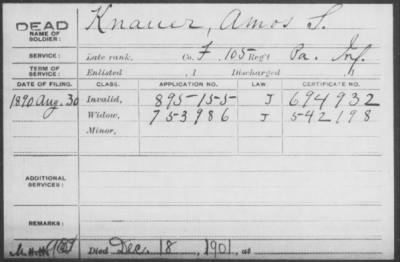 DEAD
NAME OF SOLDIER:
Knauer, Amos S.
SERVICE:
Late rank, Co. F, 105 Reg't Pa. Inf.
TERM OF SERVICE:
Enlisted , 1 Discharged , 1
DATE OF FILING. CLASS. APPLICATION NO. LAW. CERTIFICATE NO.
1890 Aug. 30 Invalid, 895-155- J 694932
Widow, 753986 J 542198
Minor,
ADDITIONAL SERVICES:
REMARKS:
Died Dec. 18, 1901, at